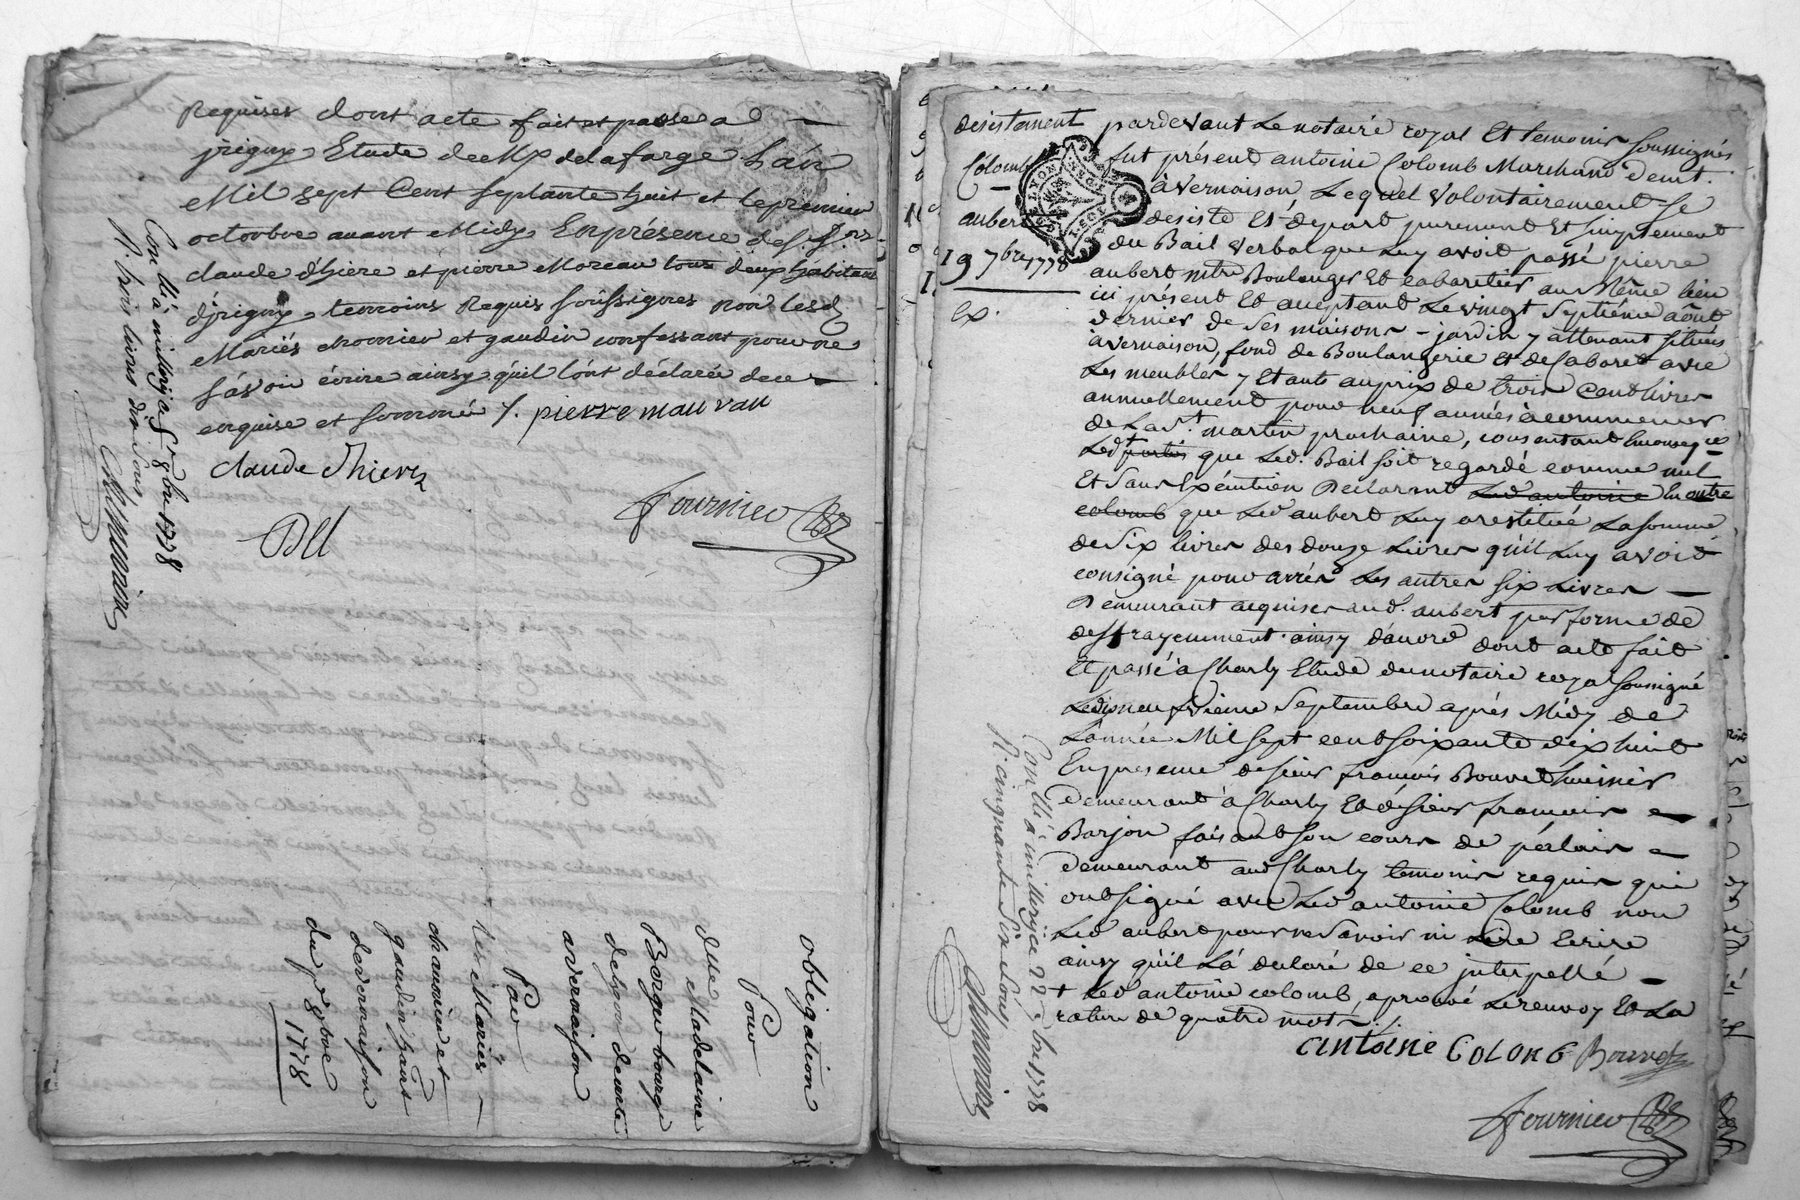 Requises dont acte fait et passé a
jrigny Etude de Me delafarge Lan
Mil sept Cent septante huit et le premier
octobre avant Midy En présence de s.
claude thiere et pierre Moreau tous deux habitant
d'jrigny temoins Requis soussignes non lesd
Mariés et gaudin confessant pour ne
sávoir écrire ainsy qu'il lont déclarée de ce
enquise et sommé /. pierre mauvau
claude thiere
fournier
Con llé à millery le 8 8bre 1778
R trois livres dix Sous
obligation
Pour
dlle Madelaine
Borgne bourge
de lyon demte
a vernaison
Par
Les Mariés
et
gaudin habts
de vernaison
du pr 8obre
1778
desistement
Colomb
aubert
19 7bre 1778
Ex.
LYON
pardevant Le notaire royal Et temoins soussignés
fut présent antoine Colomb Marchand demt.
à Vernaison, Lequel Volontairement se
desiste Et départ purement Et simplement
du Bail verbal que Luy avoit passé pierre
aubert mtre Boulanger Et Cabaretier au Même lieu
ici présent Et acceptant Le vingt Septiéme aout
dernier de Ses maisons - jardin y attenant situés
a vernaison, fond de Boulangerie Et de Cabaret avec
Les meubles y Etants au prix de trois Cent livres
annuellement pour neuf années à commencer
de La st. martin prochaine, consentant En conseqce
Led que Led. Bail soit regardé comme nul
Et Sans Exécution Declarant Led antoine En outre
colomb que Led aubert Luy a restitué La somme
de Six livres des douze Livres qu'il Luy avoit
consigné pour arres Les autres six Livres
Demeurant acquises aud. aubert par forme de
deffrayemment. ainsy d'acord dont acte fait
Et passé à Charly Etude du notaire royal soussigné
Le dix neuvieme Septembre aprés Midy de
L'année Mil Sept cent soixante dix huit
En presence de sieur françois Bouvet huissier
demeurant à Charly Et de sieur françois
Barjon faisant son cours de
demeurant aud Charly temoins requis qui
ont signé avec Led antoine Colomb non
Led aubert pour ne Savoir ni Lire Ecrire
ainsy qu'il L'á declaré de ce interpellé
+ Led antoine colomb, aprouvé Le renvoy Et La
rature de quatre mots.
antoine COLOMb Bouvet
fournier
Con llé à millery le 22 7bre 1778
R cinquante Six Sous